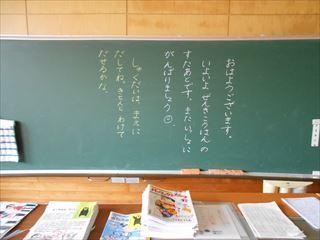 おはようございます。
いよいよ ぜんきこうはんの
すたあとです。またいっしょに
がんばりましょう☺。
しゅくだいは、まえに
だしてね。きちんと わけて
だせるかな。